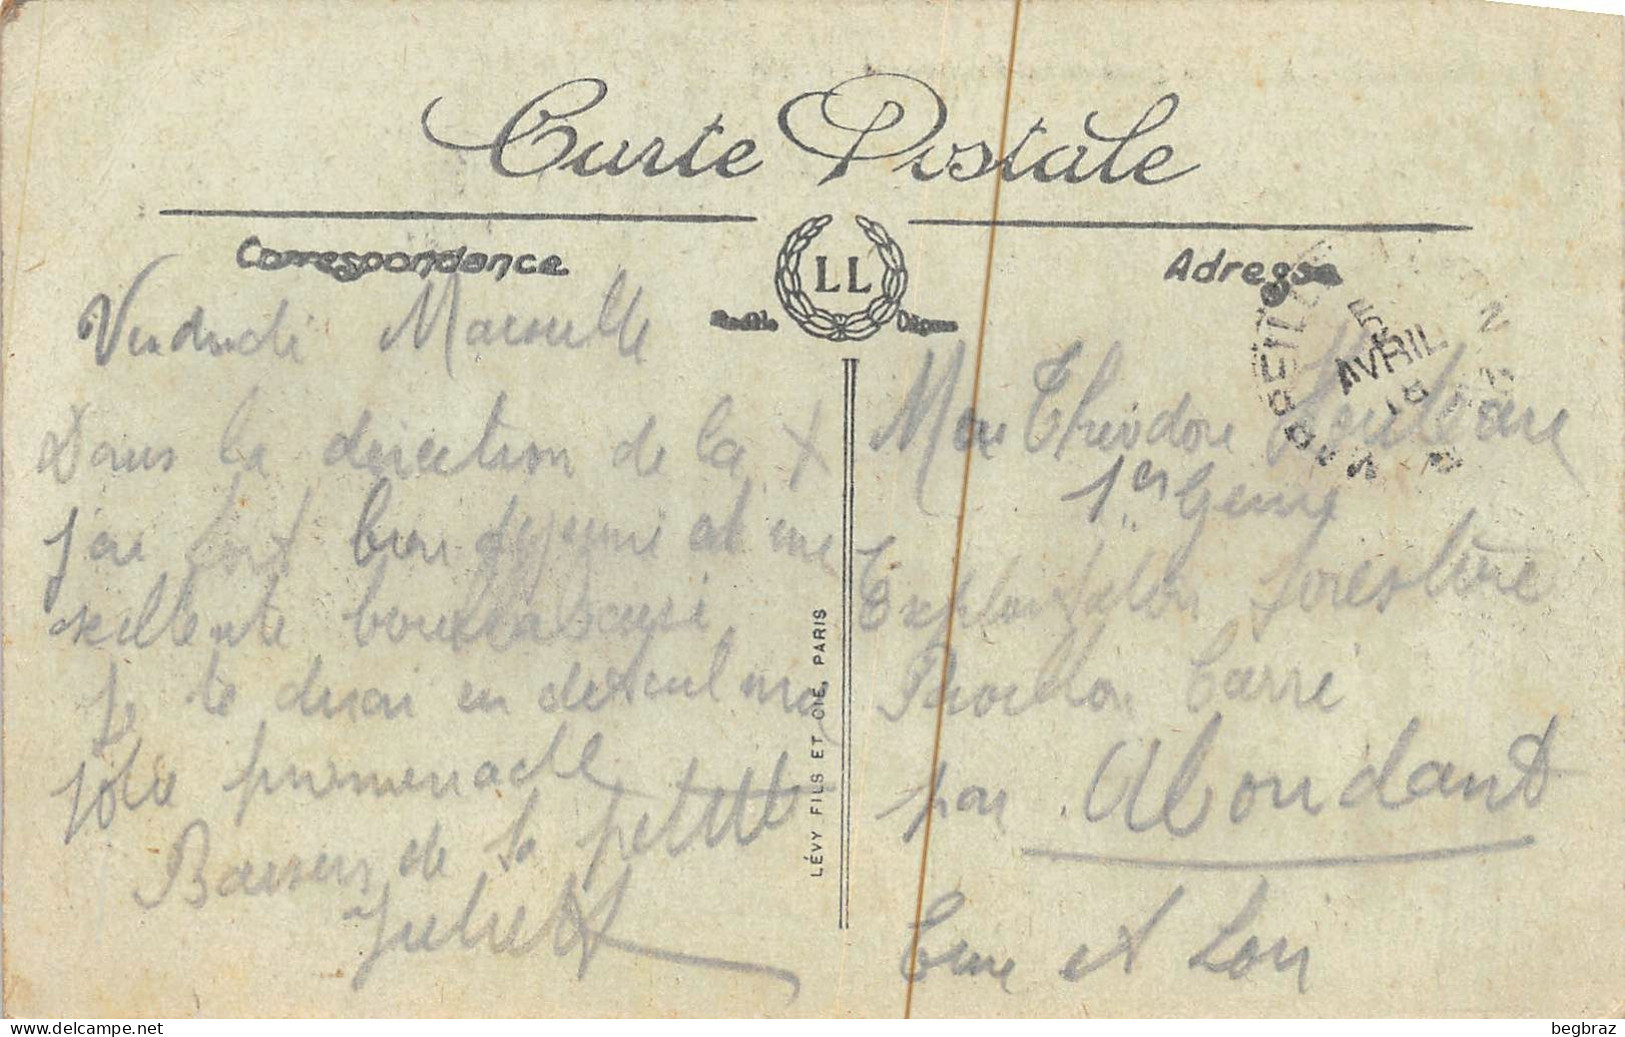 Carte Postale
Correspondance
LL
Adresse
Vendredi Marseille
Dans la direction de la X
j'ai fort bien dejeuné et une
exellente bouillabaisse
Je te dirai en detail ma
jolie promenade
Baisers de ta petite
Juliette
LÉVY FILS ET CIE, PARIS
AVRIL
18
Mon Théodore
1er Genie
Exploitation forestière
Pavillon Carré
par Abondant
Eure et Loir
begbraz